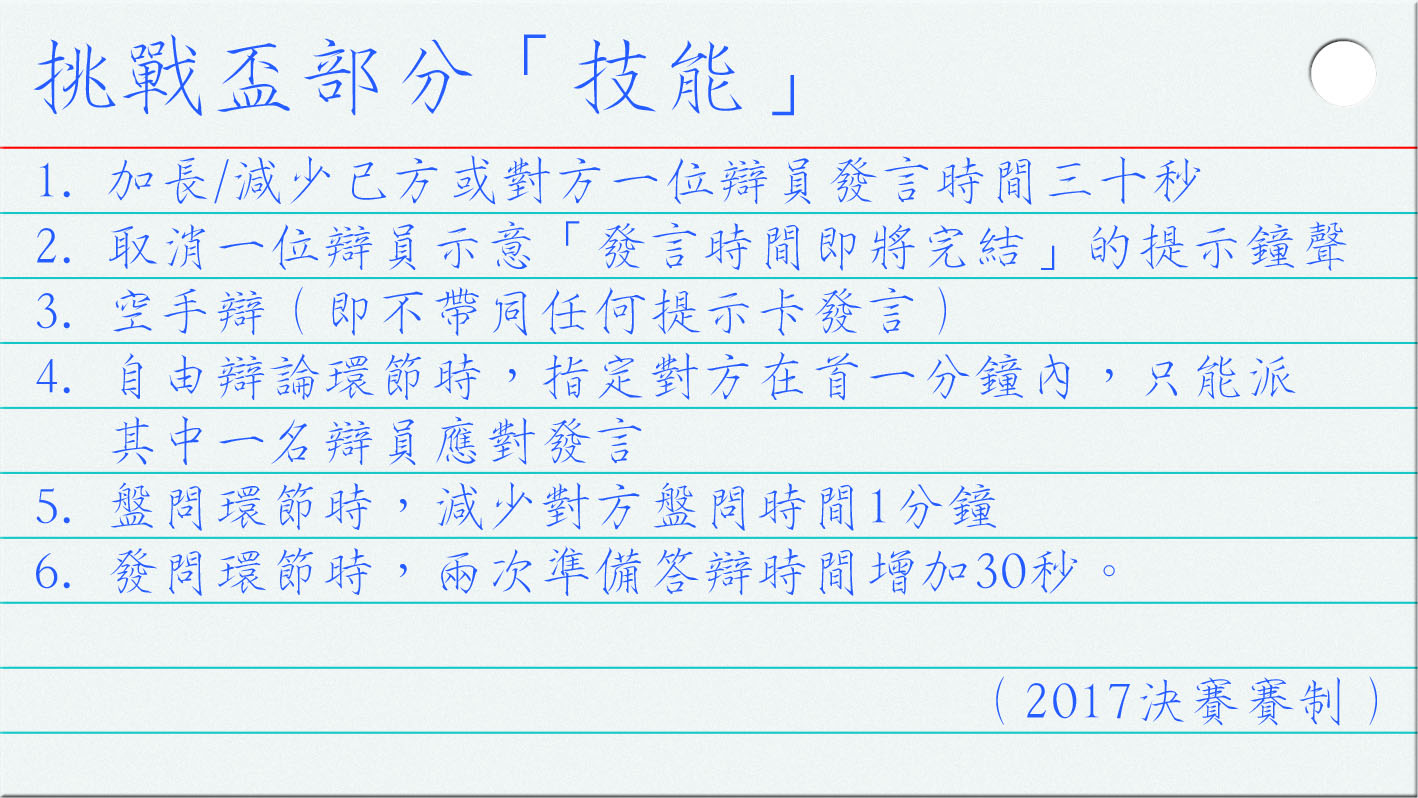 挑戰盃部分「技能」
1. 加長/減少己方或對方一位辯員發言時間三十秒
2. 取消一位辯員示意「發言時間即將完結」的提示鐘聲
3. 空手辯（即不帶同任何提示卡發言）
4. 自由辯論環節時，指定對方在首一分鐘內，只能派
其中一名辯員應對發言
5. 盤問環節時，減少對方盤問時間1分鐘
6. 發問環節時，兩次準備答辯時間增加30秒。
（2017決賽賽制）